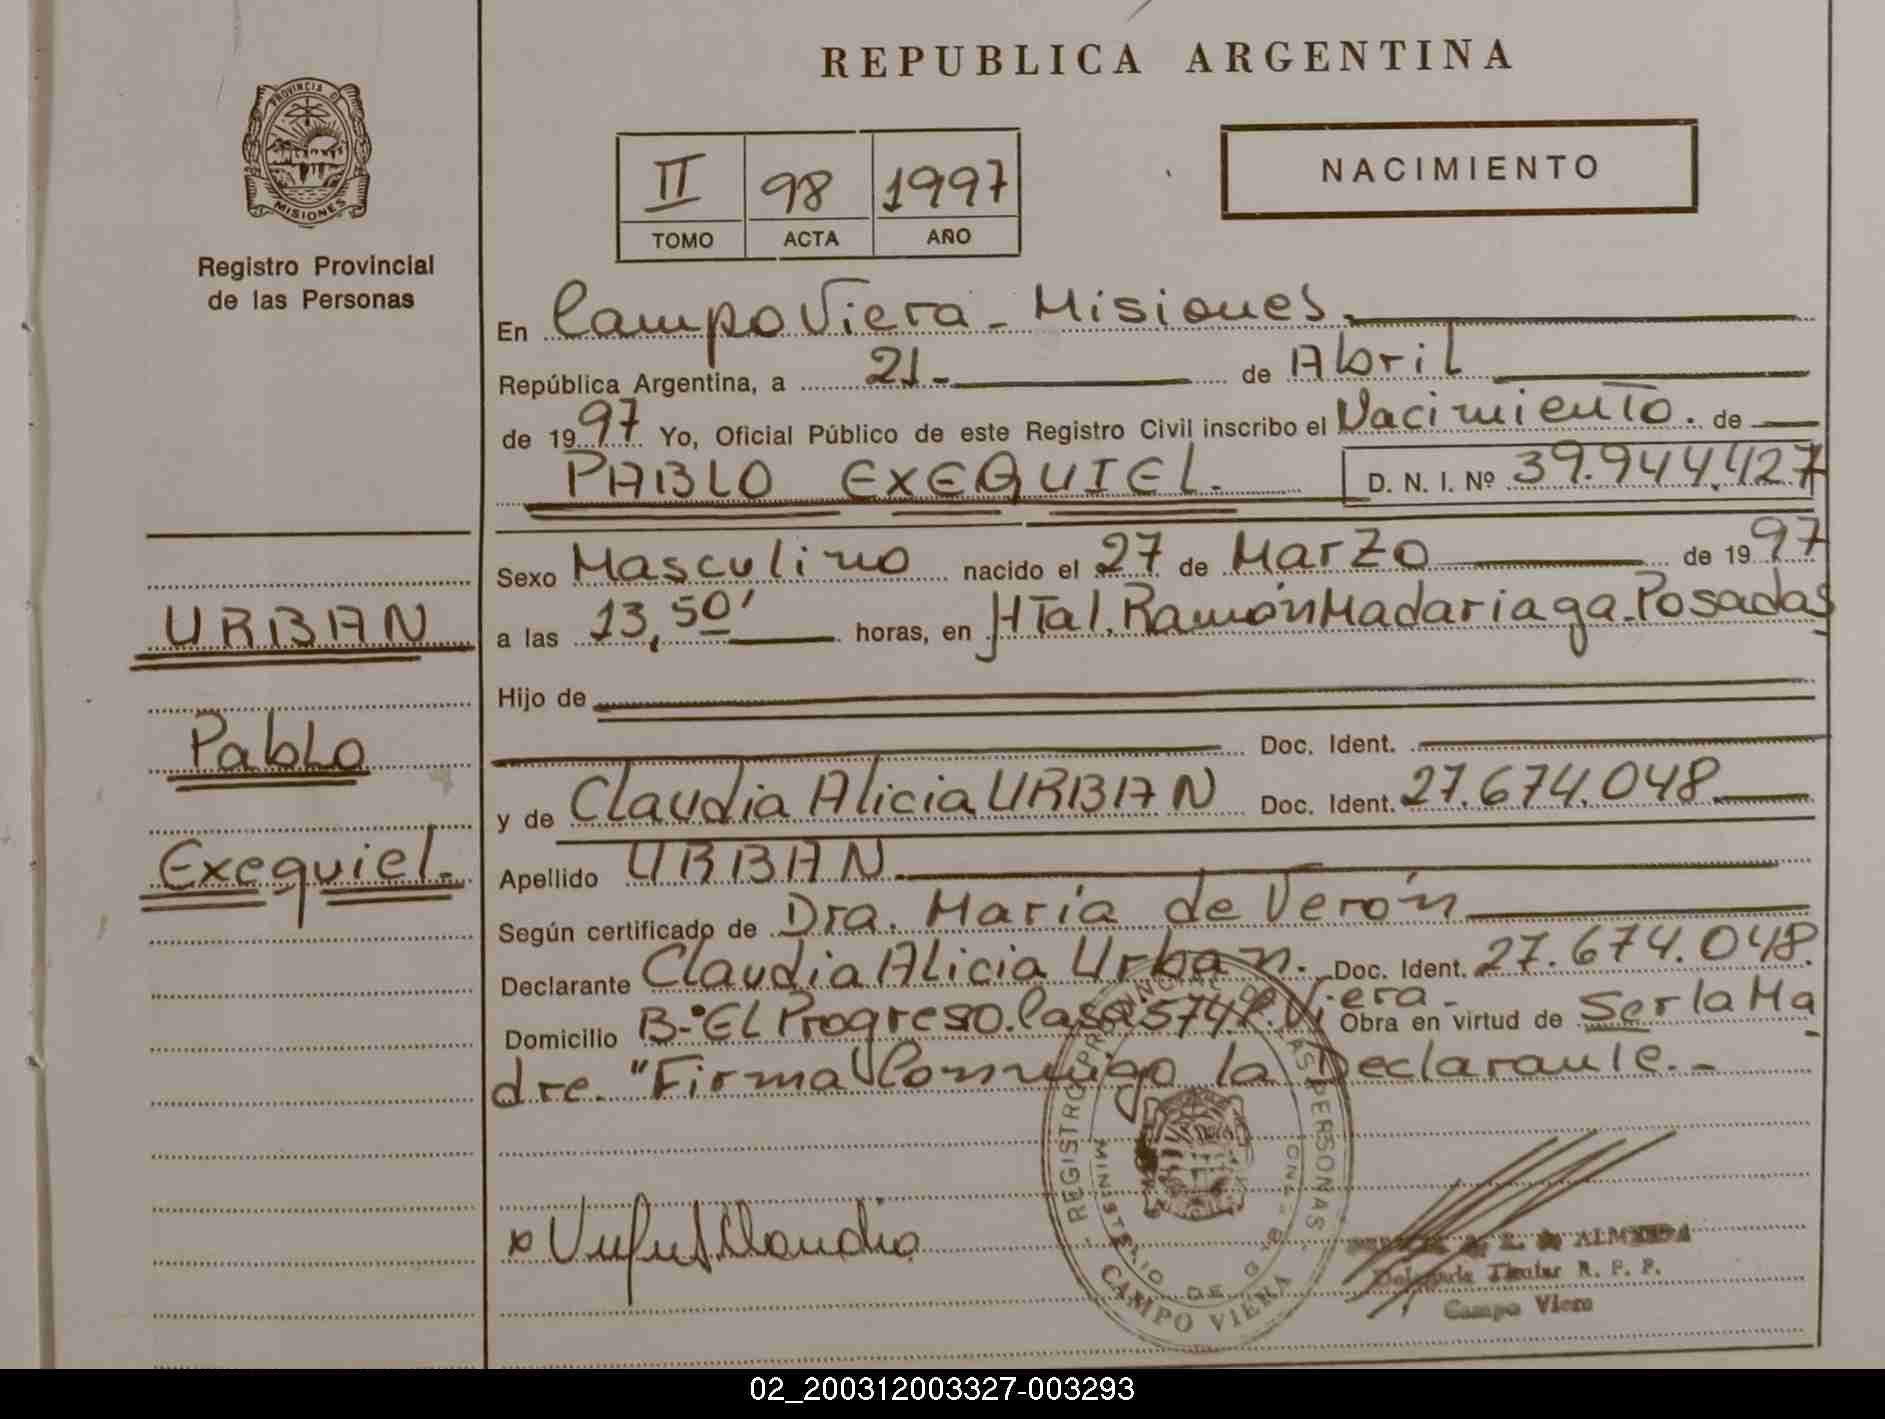 REPUBLICA ARGENTINA
PROVINCIA DE
MISIONES
Registro Provincial
de las Personas
II 98 1997
TOMO ACTA AÑO
NACIMIENTO
En Campo Viera - Misiones.
República Argentina, a 21 - de Abril
de 1997 Yo, Oficial Público de este Registro Civil inscribo el Nacimiento. de
PABLO EXEQUIEL. D. N. I. Nº 39.944.427
Sexo Masculino nacido el 27 de Marzo de 1997
a las 13,50' horas, en HTal. Ramón Madariaga. Posadas
Hijo de
Doc. Ident.
y de Claudia Alicia URBAN Doc. Ident. 27.674.048
Apellido URBAN
Según certificado de Dra. María de Verón
Declarante Claudia Alicia Urban. Doc. Ident. 27.674.048.
Domicilio B-º El Progreso. Casa 574 C. Viera - Obra en virtud de Ser la Ma
dre. "Firma Conmigo la Declarante. -
URBAN
Pablo
Exequiel.
x Claudia
REGISTRO PROVINCIAL DE LAS PERSONAS
MINISTERIO DE G
CAMPO VIERA
ALMEIDA
Delegada Titular R. P. P.
Campo Viera
02_200312003327-003293